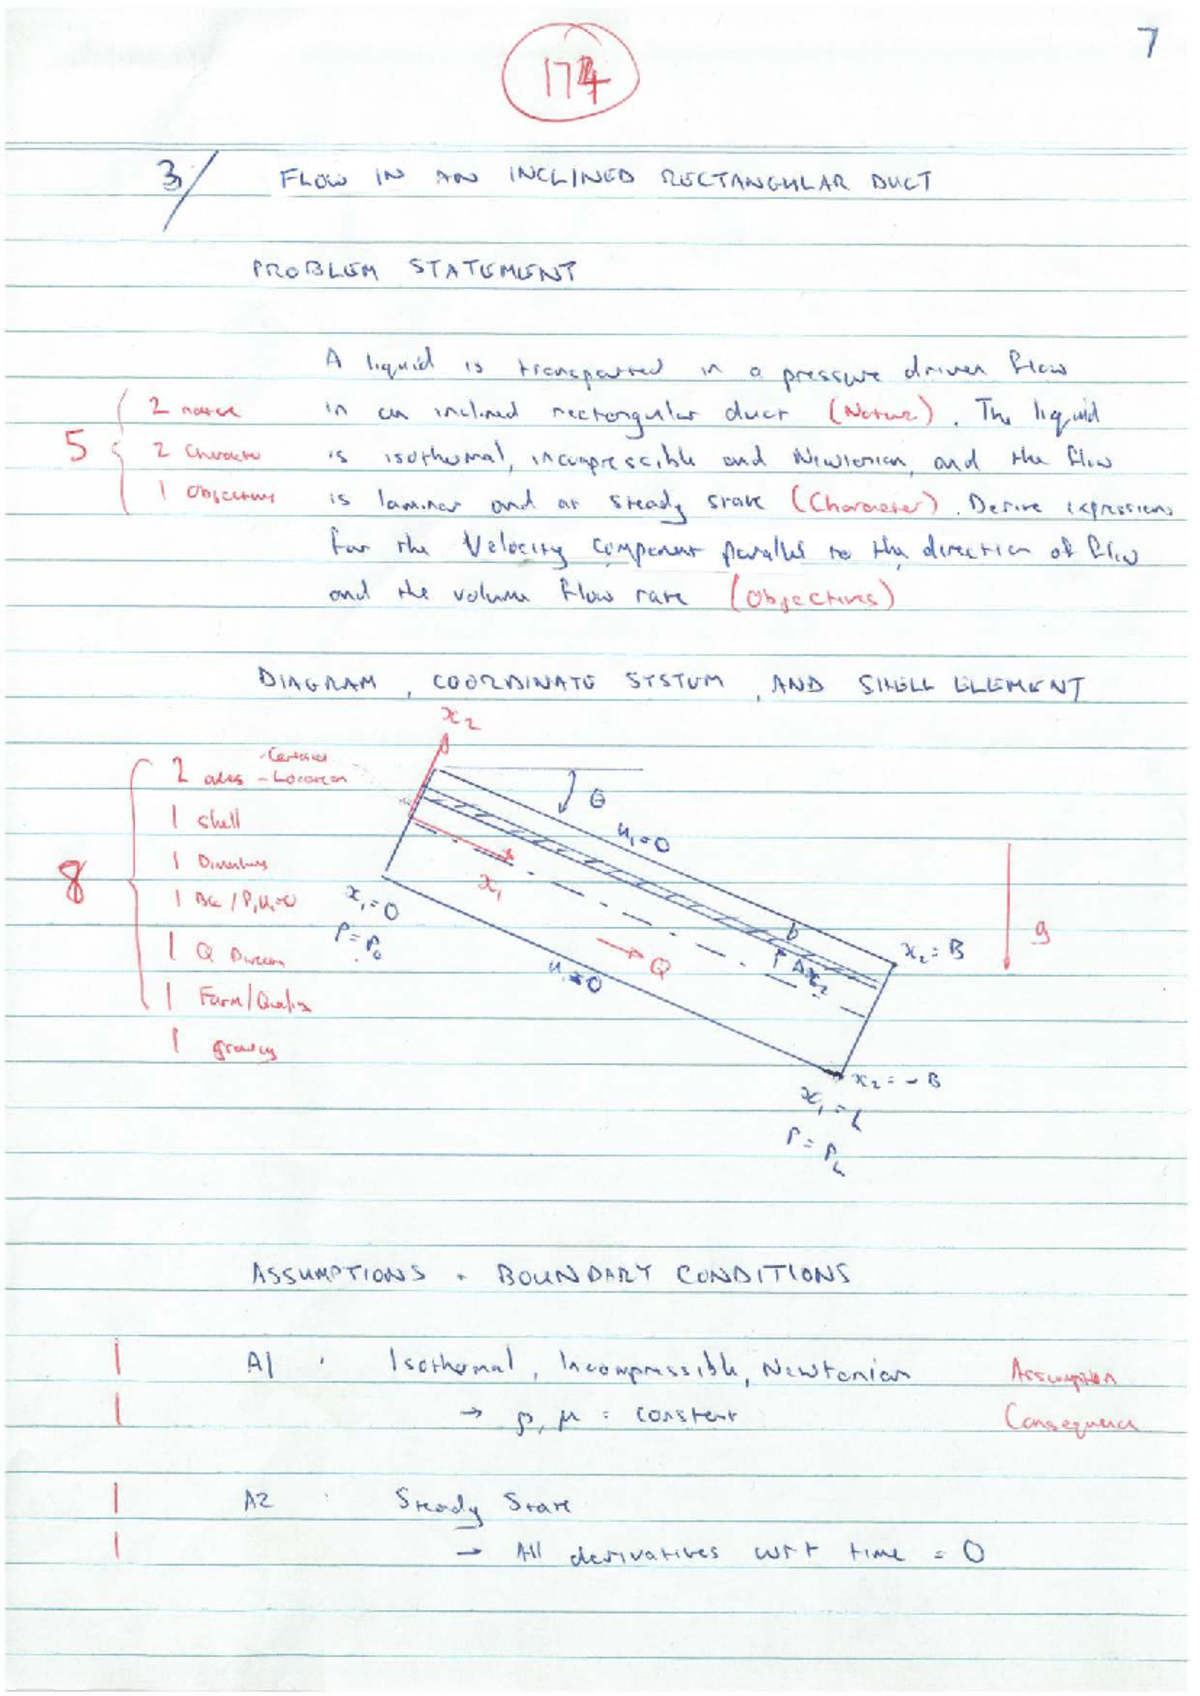 7
174
3/ FLOW IN AN INCLINED RECTANGULAR DUCT
PROBLEM STATEMENT
A liquid is transported in a pressure driven flow
2 nature in an inclined rectangular duct (Nature). The liquid
5 2 Character is isothermal, incompressible and Newtonian, and the flow
1 Objectives is laminar and at steady state (Character). Derive expressions
for the velocity component parallel to the direction of flow
and the volume flow rate (Objectives)
DIAGRAM, COORDINATE SYSTEM, AND SHELL ELEMENT
x₂
- Cartesian
2 axes - Location
θ
1 shell
u₁=0
1 Dimensions
8
x₁
1 BC / P, u₁=0
x₁=0
b
g
P=P₀
x₂=B
1 Q Direction
Q
Δx₂
u₁=0
1 Form/Quality
1 gravity
x₂=-B
x₁=L
P=P_L
ASSUMPTIONS + BOUNDARY CONDITIONS
1 A1 : Isothermal, Incompressible, Newtonian Assumption
1 → ρ, μ = constant Consequence
1 A2 : Steady State
1 → All derivatives wrt time = 0